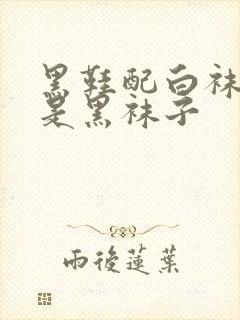 黑鞋配白袜
是黑袜子
雨後蓮葉